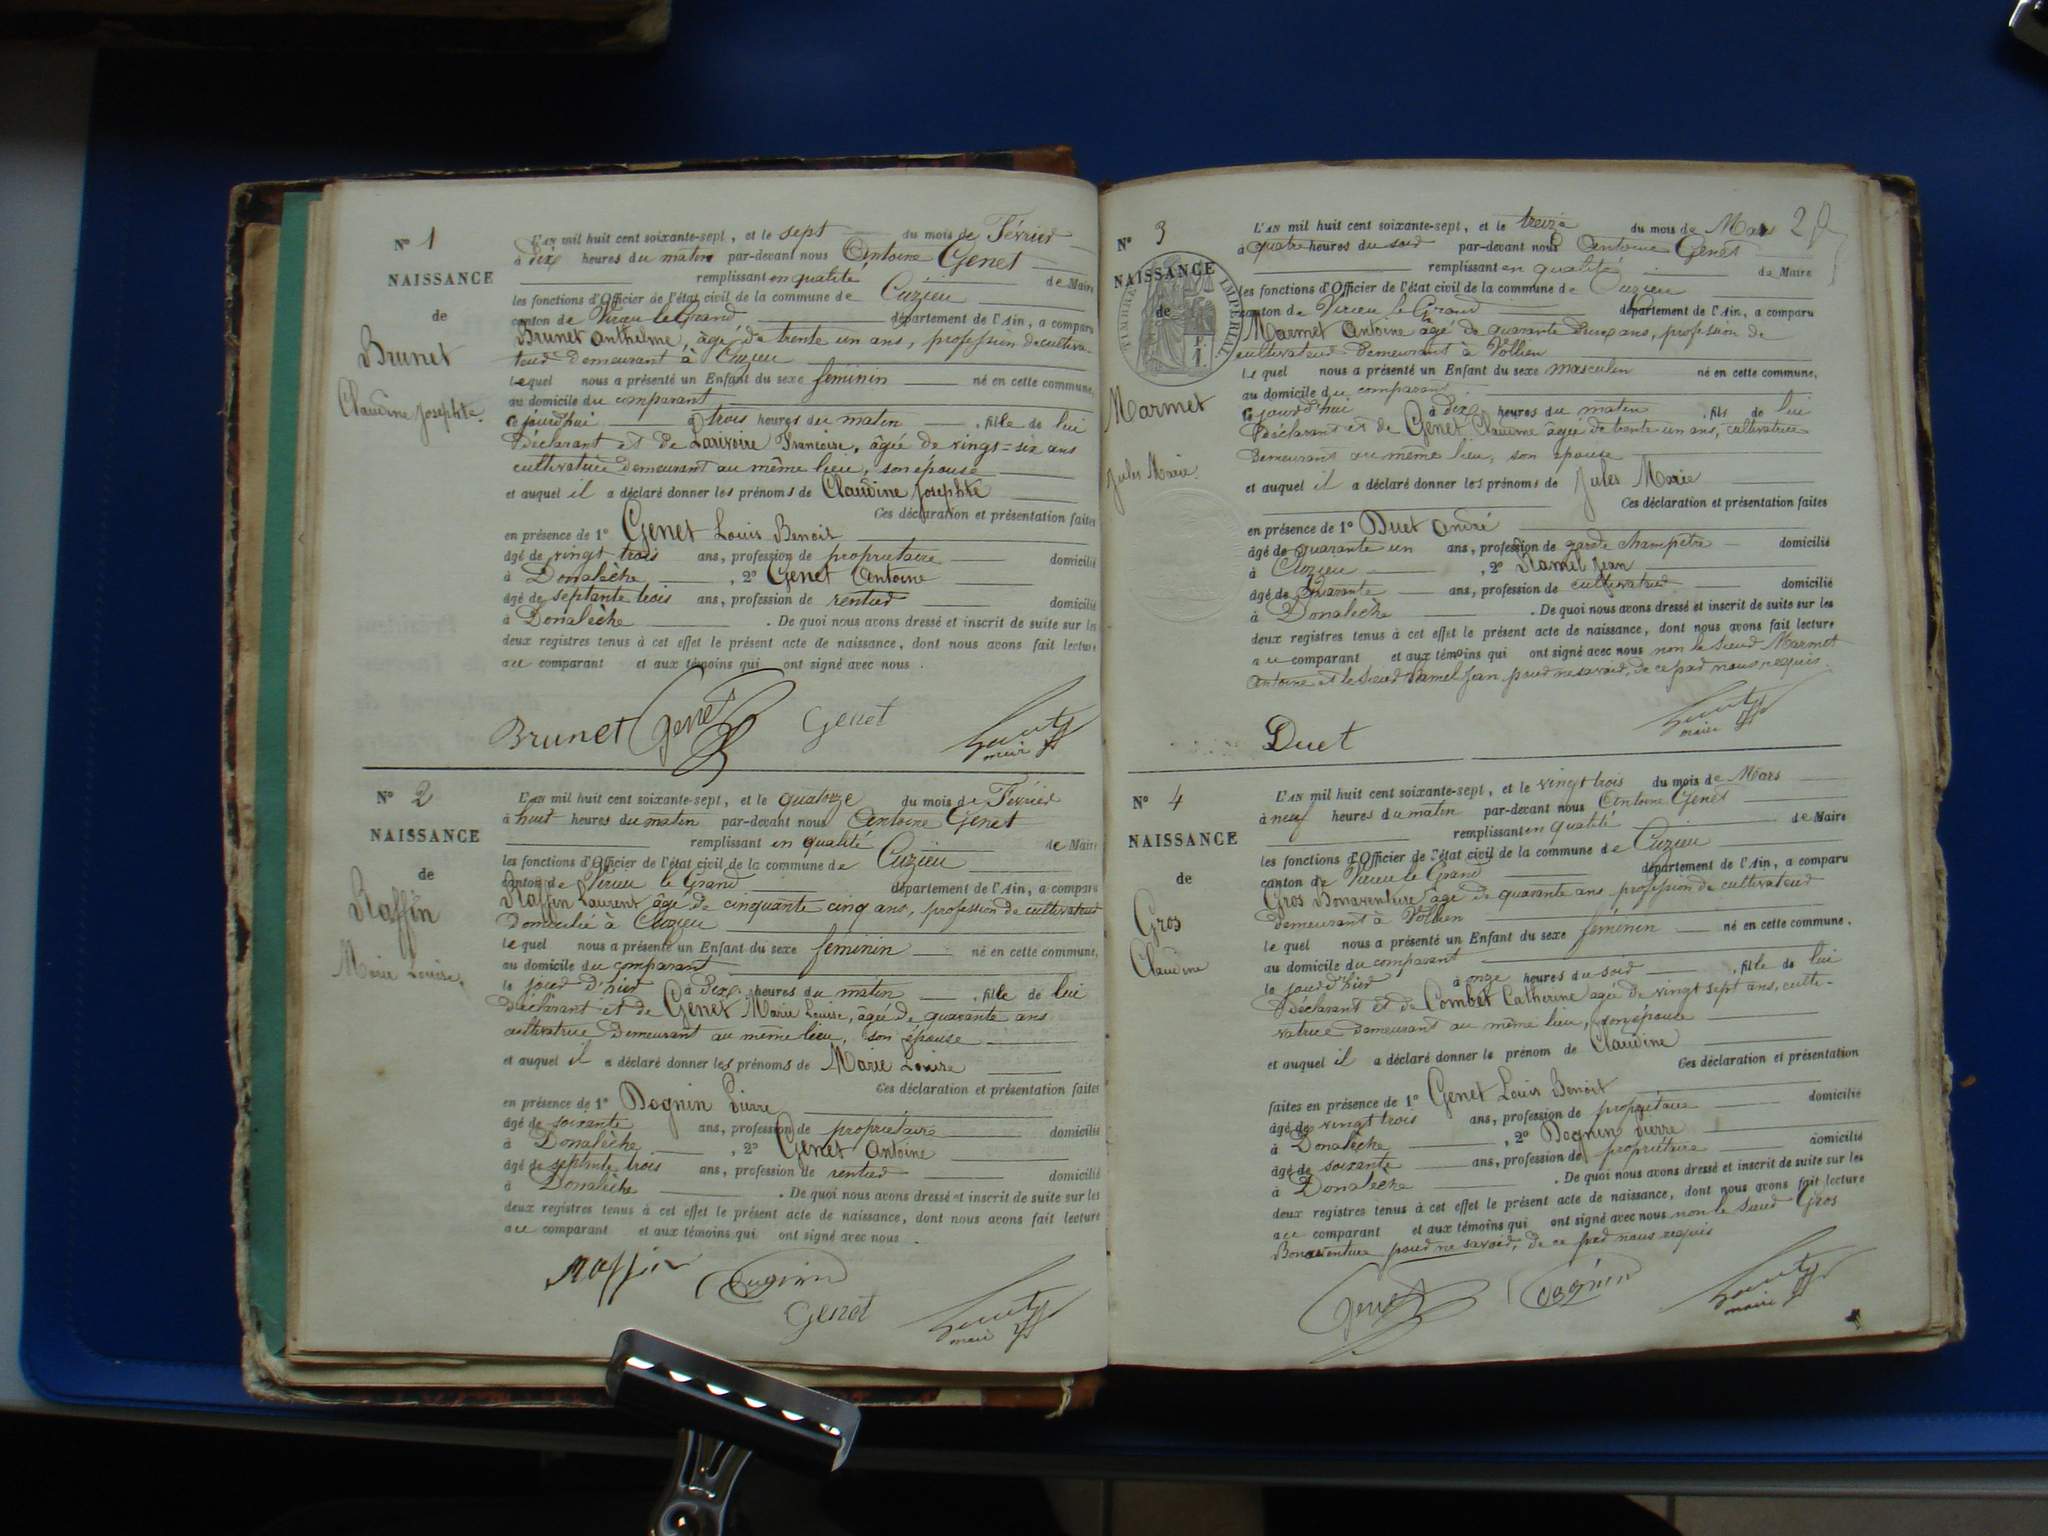 N° 1
NAISSANCE
de
Brunet
Claudine Josephte.
L'AN mil huit cent soixante-sept, et le sept du mois de Février
à dix heures du matin par-devant nous Antoine Genet
remplissant en qualité de Maire
les fonctions d'Officier de l'état civil de la commune de Cuzieu
canton de Virieu le Grand département de l'Ain, a comparu
Brunet Anthelme, âgé de trente un ans, profession de cultiva-
teur demeurant à Cuzieu
lequel nous a présenté un Enfant du sexe féminin né en cette commune,
au domicile du comparant
ce jourd'hui à trois heures du matin, fille de lui
déclarant et de Larivoire Françoise, âgée de vingt-six ans
cultivatrice demeurant au même lieu, son épouse
et auquel il a déclaré donner les prénoms de Claudine Josephte
Ces déclaration et présentation faites
en présence de 1° Genet Louis Benoit
âgé de vingt trois ans, profession de propriétaire domicilié
à Donalèche, 2° Genet Antoine
âgé de septante trois ans, profession de rentier domicilié
à Donalèche. De quoi nous avons dressé et inscrit de suite sur les
deux registres tenus à cet effet le présent acte de naissance, dont nous avons fait lecture
au comparant et aux témoins qui ont signé avec nous.
Brunet Genet Genet
maire
N° 2
NAISSANCE
de
Raffin
Marie Louise.
L'AN mil huit cent soixante-sept, et le quatorze du mois de Février
à huit heures du matin par-devant nous Antoine Genet
remplissant en qualité de Maire
les fonctions d'Officier de l'état civil de la commune de Cuzieu
canton de Virieu le Grand département de l'Ain, a comparu
Raffin Laurent âgé de cinquante cinq ans, profession de cultivateur
domicilié à Cuzieu
lequel nous a présenté un Enfant du sexe féminin né en cette commune,
au domicile du comparant
le jour d'hier à dix heures du matin, fille de lui
déclarant et de Genet Marie Louise, âgée de quarante ans
cultivatrice demeurant au même lieu, son épouse
et auquel il a déclaré donner les prénoms de Marie Louise
Ces déclaration et présentation faites
en présence de 1° Dognin Pierre
âgé de soixante ans, profession de propriétaire domicilié
à Donalèche, 2° Genet Antoine
âgé de septante trois ans, profession de rentier domicilié
à Donalèche. De quoi nous avons dressé et inscrit de suite sur les
deux registres tenus à cet effet le présent acte de naissance, dont nous avons fait lecture
au comparant et aux témoins qui ont signé avec nous.
Raffin Dognin
Genet
maire
N° 3
NAISSANCE
de
TIMBRE IMPÉRIAL
Marmet
Jules Marie.
L'AN mil huit cent soixante-sept, et le treize du mois de Mars
à quatre heures du soir par-devant nous Antoine Genet
remplissant en qualité de Maire
les fonctions d'Officier de l'état civil de la commune de Cuzieu
canton de Virieu le Grand département de l'Ain, a comparu
Marmet Antoine âgé de quarante deux ans, profession de
cultivateur demeurant à Vollien
lequel nous a présenté un Enfant du sexe masculin né en cette commune,
au domicile du comparant
ce jourd'hui à dix heures du matin, fils de lui
déclarant et de Genet Claudine âgée de trente un ans, cultivatrice
demeurant au même lieu, son épouse
et auquel il a déclaré donner les prénoms de Jules Marie
Ces déclaration et présentation faites
en présence de 1° Duet André
âgé de quarante un ans, profession de garde champêtre domicilié
à Cuzieu, 2° Ramel Jean
âgé de quarante ans, profession de cultivateur domicilié
à Donalèche. De quoi nous avons dressé et inscrit de suite sur les
deux registres tenus à cet effet le présent acte de naissance, dont nous avons fait lecture
au comparant et aux témoins qui ont signé avec nous non le sieur Marmet
Antoine et le sieur Ramel Jean pour ne savoir, de ce par nous requis.
Duet
maire
N° 4
NAISSANCE
de
Gros
Claudine
L'AN mil huit cent soixante-sept, et le vingt trois du mois de Mars
à neuf heures du matin par-devant nous Antoine Genet
remplissant en qualité de Maire
les fonctions d'Officier de l'état civil de la commune de Cuzieu
canton de Virieu le Grand département de l'Ain, a comparu
Gros Bonaventure âgé de quarante ans profession de cultivateur
demeurant à Vollien
lequel nous a présenté un Enfant du sexe féminin né en cette commune,
au domicile du comparant
le jour d'hier à onze heures du soir, fille de lui
déclarant et de Combet Catherine agée de vingt sept ans, culti-
vatrice demeurant au même lieu, son épouse
et auquel il a déclaré donner le prénom de Claudine
Ces déclaration et présentation
faites en présence de 1° Genet Louis Benoit
âgé de vingt trois ans, profession de propriétaire domicilié
à Donalèche, 2° Dognin Pierre
âgé de soixante ans, profession de propriétaire domicilié
à Donalèche. De quoi nous avons dressé et inscrit de suite sur les
deux registres tenus à cet effet le présent acte de naissance, dont nous avons fait lecture
au comparant et aux témoins qui ont signé avec nous non le sieur Gros
Bonaventure pour ne savoir, de ce par nous requis
Genet Dognin
maire